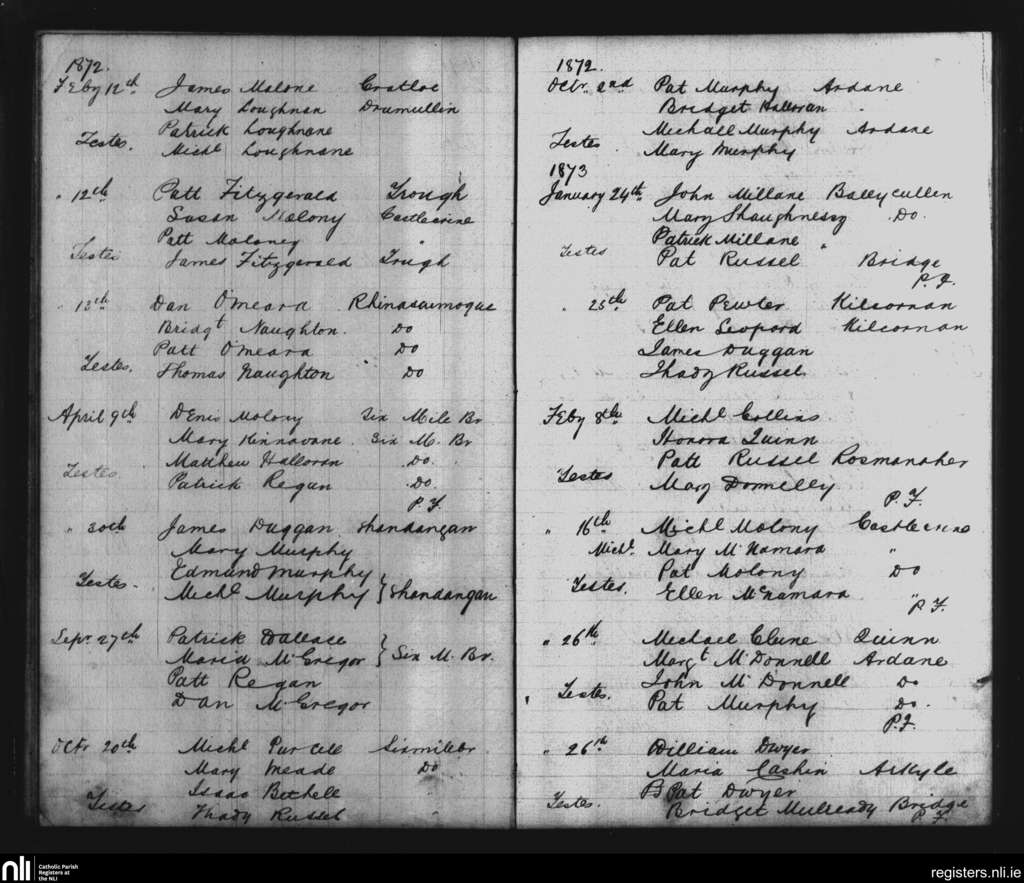 1872.
Feby 12th James Malone Cratloe
Mary Loughnan Drumullin
Patrick Loughnane
Testes. Michl Loughnane
" 12th Patt Fitzgerald Trough
Susan Molony Castlecrine
Patt Maloney "
Testes James Fitzgerald Trugh
" 13th Dan O'Meara
Bridgt Naughton. Do
Patt O'Meara Do
Testes. Thomas Naughton Do
April 9th Denis Molony Six Mile Br
Mary Kinnavane. Six M. Br
Matthew Halloran Do.
Testes Patrick Regan Do.
P.F.
" 30th James Duggan Shandangan
Mary Murphy
Edmund Murphy
Testes. Michl Murphy } Shandangan
Sepr 27th Patrick Wallace
Maria McGregor } Six M. Br.
Patt Regan
Dan McGregor
Octr 20th Michl Purcell Sixmilebr
Mary Meade Do
Isaac Bethell
Testes Thady Russel
1872.
Octr. 2nd Pat Murphy Ardane
Bridget Halloran
Michall Murphy Ardane
Testes Mary Murphy
1873
January 24th John Millane Ballycullen
Mary Shaughnessy Do.
Patrick Millane "
Testes Pat Russel Bridge
P.F.
" 25th Pat Pewter Kilcornan
Ellen Leopord Kilcornan
James Duggan
Thady Russel
Feby 8th Michl Collins
Honora Quinn
Patt Russel Rosmanaher
Testes Mary Donnelly
P.F.
" 16th Michl Molony Castlecrine
Michl. Mary McNamara "
Pat Molony Do
Testes. Ellen McNamara "
P.F.
" 26th Michael Clune Quinn
Margt McDonnell Ardane
John McDonnell Do
Testes. Pat Murphy Do.
P.F.
" 26th William Dwyer
Maria Cashin Arkyle
B Pat Dwyer
Testes. Bridget Mulready Bridge
P.F.
nli Catholic Parish
Registers at
the NLI
registers.nli.ie